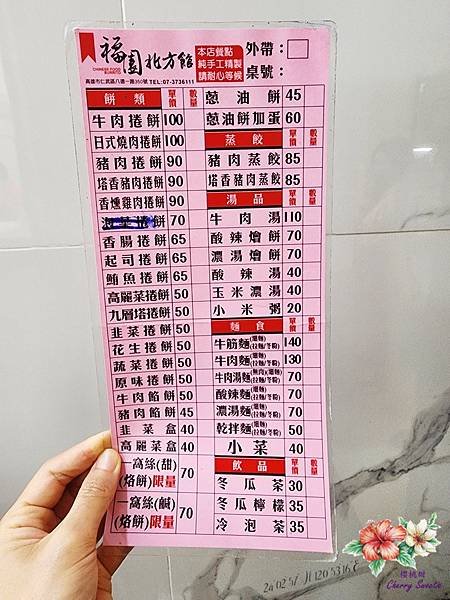 福園北方餡
CHINESE FOOD BURRITO
高雄市仁武區八德一路350號 TEL:07-3736111
本店餐點
純手工精製
請耐心等候
外帶：
桌號：
餅類 單價 數量
牛肉捲餅 100
日式燒肉捲餅 100
豬肉捲餅 90
塔香豬肉捲餅 90
香燻雞肉捲餅 90
捲餅 70
香腸捲餅 65
起司捲餅 65
鮪魚捲餅 50
高麗菜捲餅 50
九層塔捲餅 50
韭菜捲餅 50
花生捲餅 50
蔬菜捲餅 50
原味捲餅 50
牛肉餡餅 50
豬肉餡餅 45
韭菜盒 40
高麗菜盒 40
一窩絲(甜)
(烙餅)限量 70
一窩絲(鹹)
(烙餅)限量 70
蔥油餅 45
蔥油餅加蛋 60
蒸餃 單價 數量
豬肉蒸餃 85
塔香豬肉蒸餃 85
湯品 單價 數量
牛肉湯 110
酸辣燴餅 70
濃湯燴餅 70
酸辣湯 40
玉米濃湯 40
小米粥 20
麵食 單價 數量
牛筋麵(細麵)(拉麵/冬粉) 140
牛肉麵(細麵)(拉麵/冬粉) 130
牛肉湯麵(無肉)(細麵)(拉麵/冬粉) 70
酸辣麵(細麵)(拉麵/冬粉) 70
濃湯麵(細麵)(拉麵/冬粉) 70
乾拌麵(細麵)(拉麵/冬粉) 50
小菜 40
飲品 單價 數量
冬瓜茶 30
冬瓜檸檬 35
冷泡茶 35
櫻桃樹
Cherry Sweete